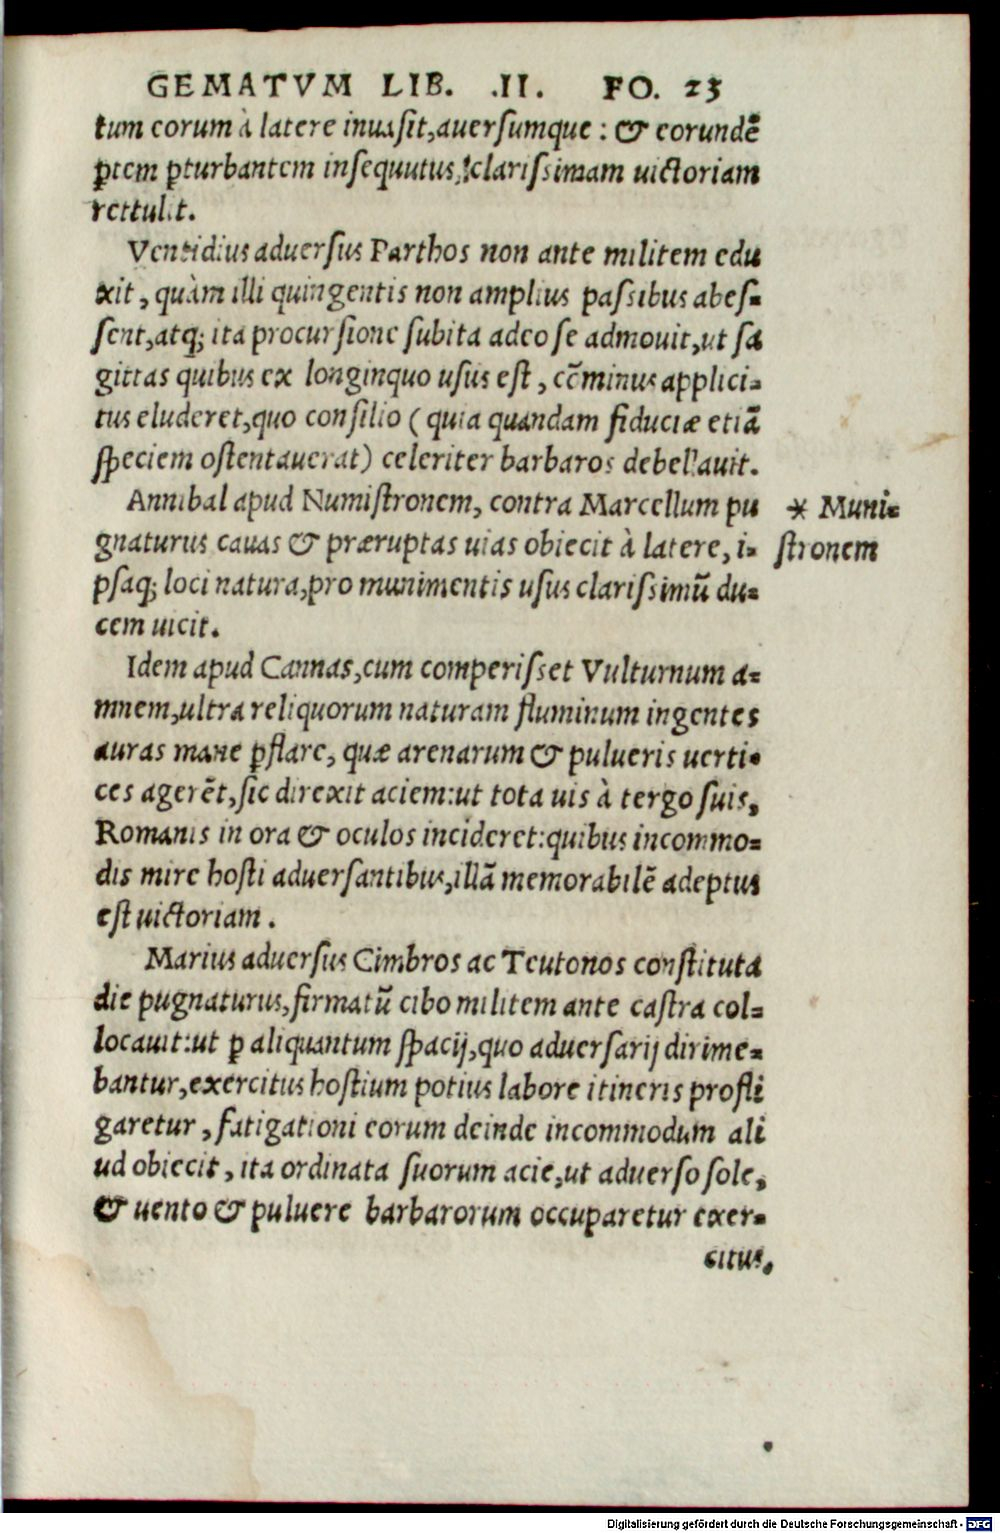 GEMATVM LIB. .II. FO. 23
tum eorum à latere inuasit,auersumque : & eorundē
ꝑtem ꝑturbantem insequutus, clarissimam uictoriam
rettulit.
Ventidius aduersus Parthos non ante militem edu
xit , quàm illi quingentis non amplius passibus abes-
sent,atq; ita procursione subita adeo se admouit,ut sa
gittas quibus ex longinquo usus est , cōminus applici-
tus eluderet,quo consilio ( quia quandam fiduciæ etiā
speciem ostentauerat) celeriter barbaros debellauit.
Annibal apud Numistronem, contra Marcellum pu
gnaturus cauas & præruptas uias obiecit à latere, i-
psaq; loci natura,pro munimentis usus clarissimū du-
cem uicit.
* Muni-
stronem
Idem apud Cannas,cum comperisset Vulturnum a-
mnem,ultra reliquorum naturam fluminum ingentes
auras mane ꝑflare, quæ arenarum & pulueris uerti-
ces agerēt,sic direxit aciem:ut tota uis à tergo suis,
Romanis in ora & oculos incideret:quibus incommo-
dis mire hosti aduersantibus,illā memorabilē adeptus
est uictoriam .
Marius aduersus Cimbros ac Teutonos constituta
die pugnaturus,firmatū cibo militem ante castra col-
locauit:ut ꝑ aliquantum spacij,quo aduersarij dirime-
bantur,exercitus hostium potius labore itineris profli
garetur , fatigationi eorum deinde incommodum ali
ud obiecit , ita ordinata suorum acie,ut aduerso sole,
& uento & puluere barbarorum occuparetur exer-
citus.
Digitalisierung gefördert durch die Deutsche Forschungsgemeinschaft - DFG